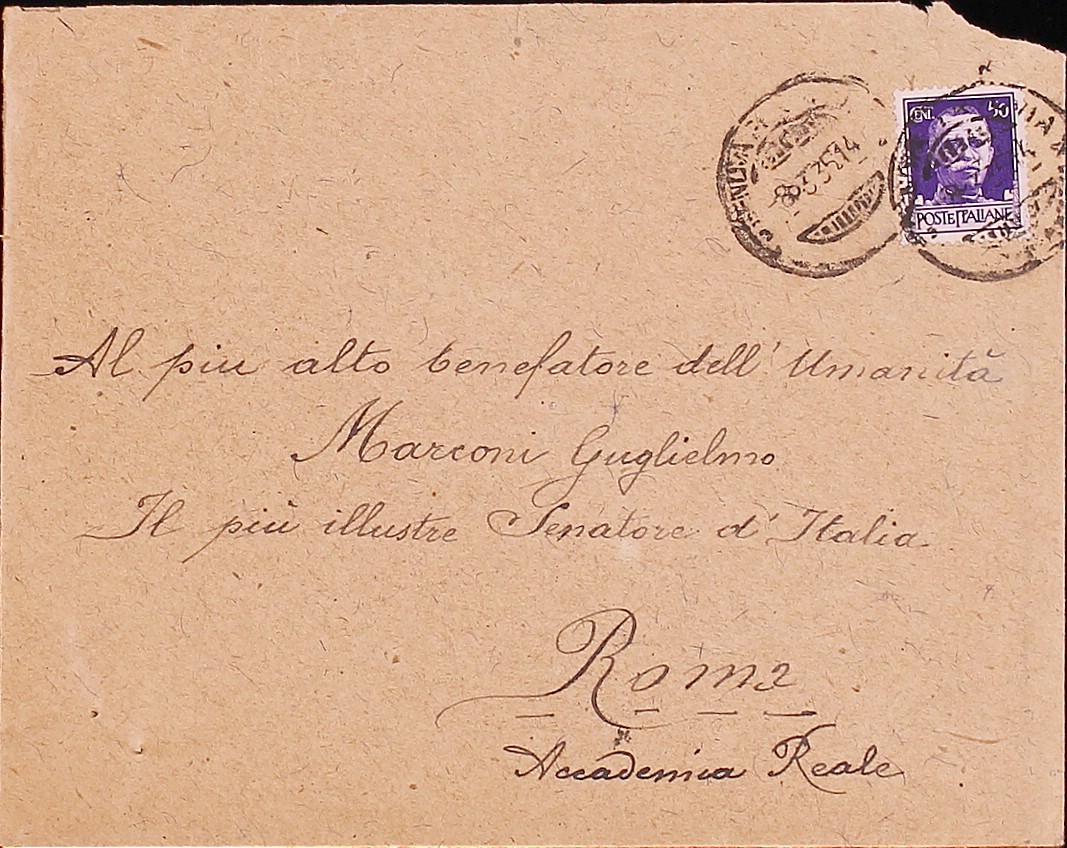 CENT. 50
POSTE ITALIANE
8.3.35.14
Al piu alto benefatore dell' Umanità
Marconi Guglielmo
Il più illustre Senatore d' Italia
Roma
Accademia Reale